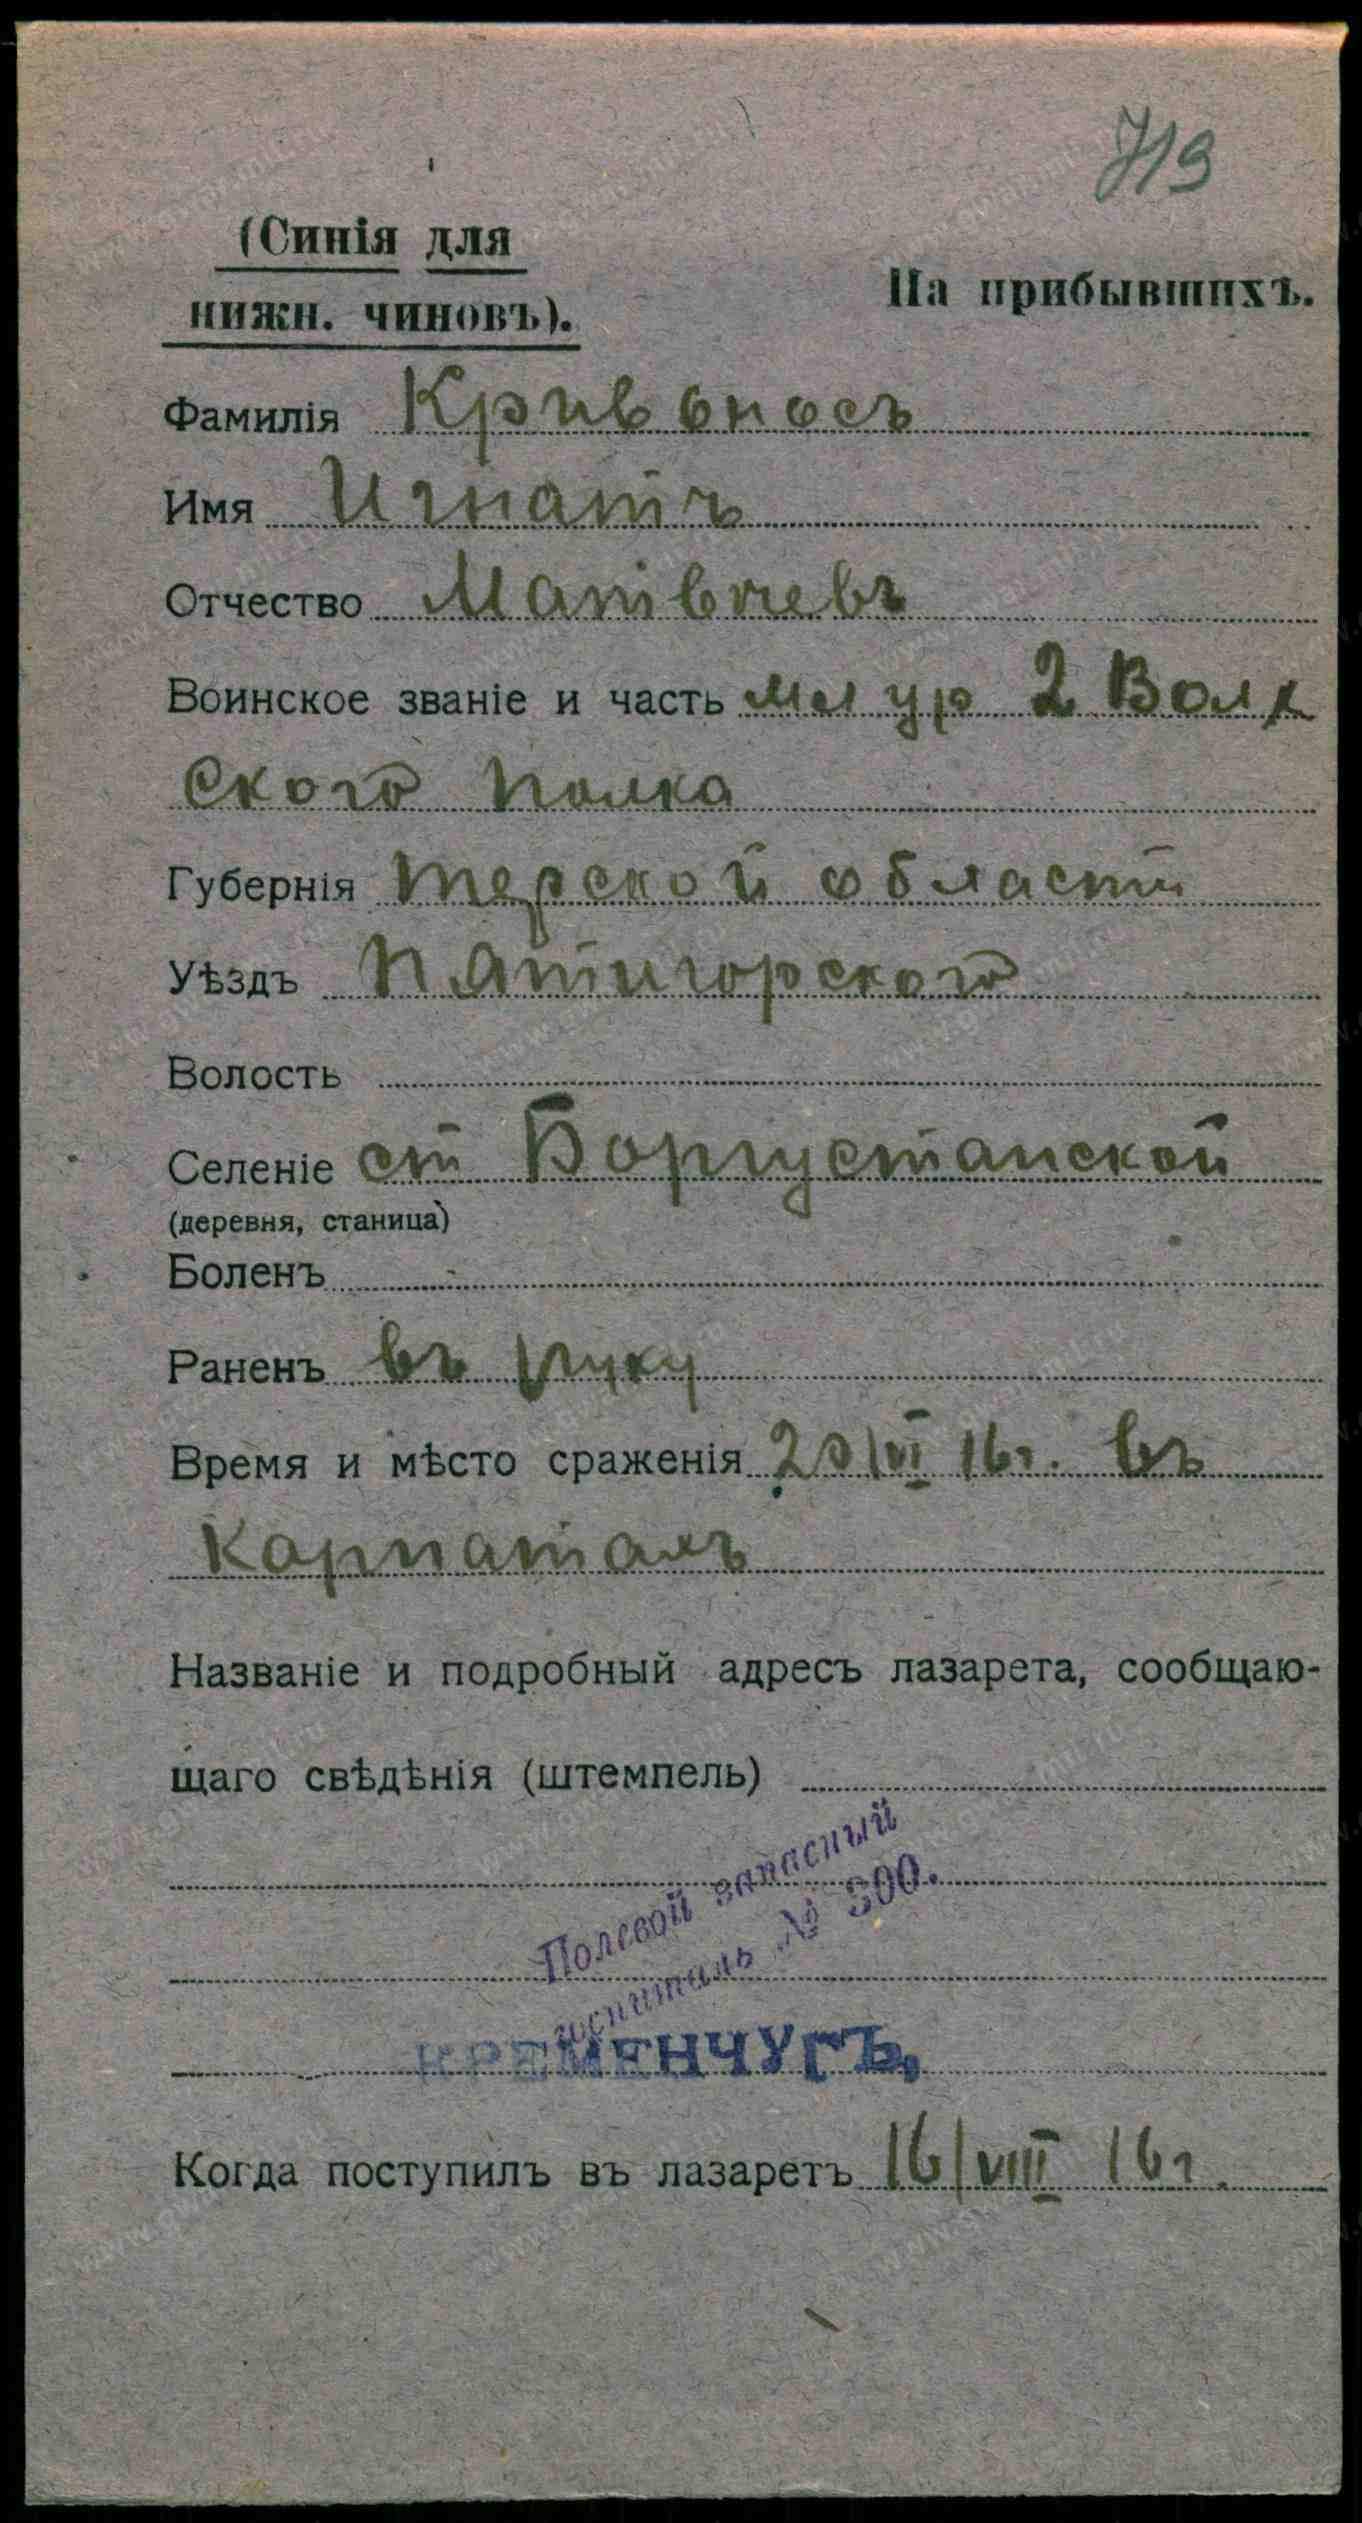 719
(Синія для
нижн. чиновъ).
На прибывшихъ.
Фамилія Кривоносъ
Имя Игнатъ
Отчество Матвѣевъ
Воинское званіе и часть мл ур 2 Волг
ского полка
Губернія терской области
Уѣздъ Пятигорского
Волость
Селеніе ст Боргустанской
(деревня, станица)
Боленъ
Раненъ въ руку
Время и мѣсто сраженія 20/VI 16г. въ
Карпатахъ
Названіе и подробный адресъ лазарета, сообщаю-
щаго свѣдѣнія (штемпель)
Полевой запасный
госпиталь № 300.
КРЕМЕНЧУГЪ,
Когда поступилъ въ лазаретъ 16/VIII 16г.